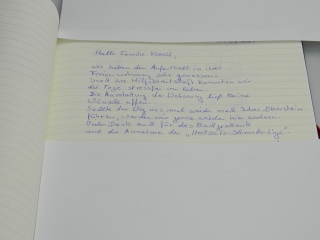 Hallo Familie
wir haben den Aufenthalt in ihrer
Ferienwohnung sehr genossen.
Dank ihre Hilfsbereitschaft konnten wir
die Tage stressfrei
Die Ausstattung der Wohnung ließ keine
Wünsche offen.
Sollte der Weg uns mal wieder nach Idar-Oberstein
führen, werden wir gerne wieder hier wohnen.
Vielen Dank auch für das
und die Ausnahme der